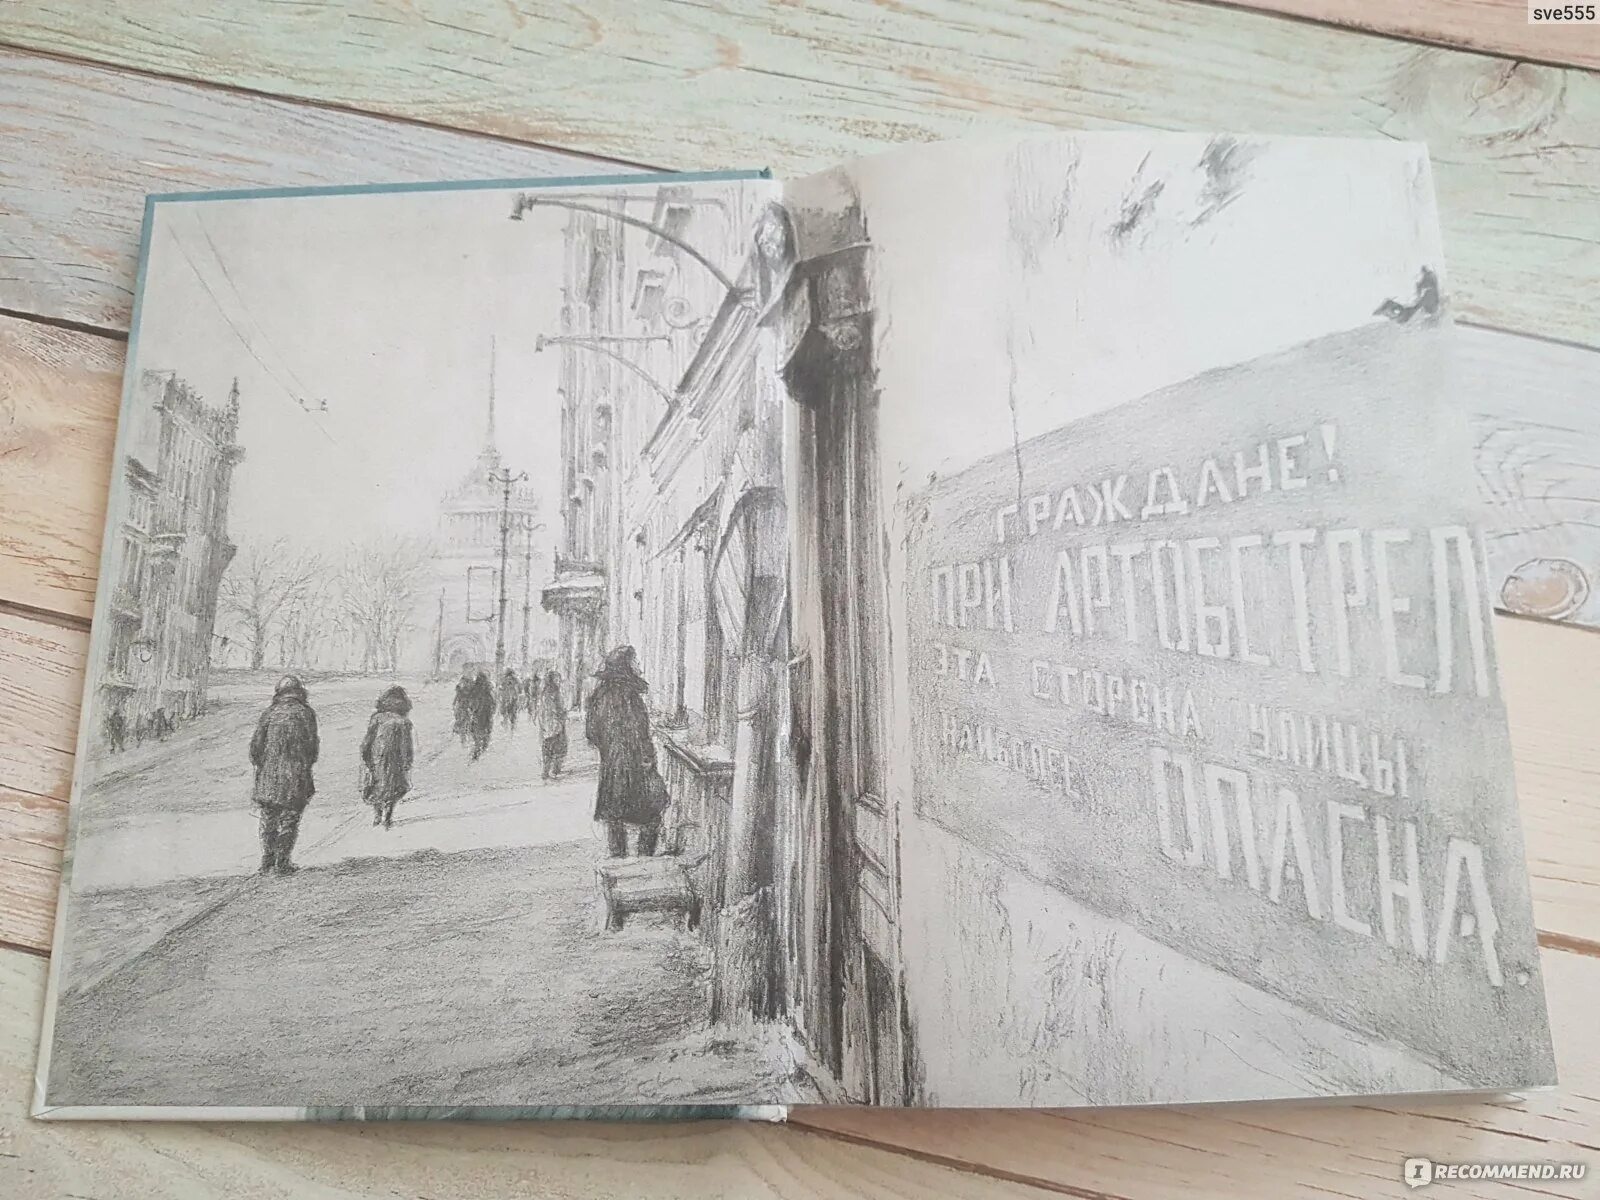 sve555
ГРАЖДАНЕ!
ПРИ АРТОБСТРЕЛ
ЭТА СТОРОНА УЛИЦЫ
НАИБОЛЕЕ ОПАСНА.
RECOMMEND.RU